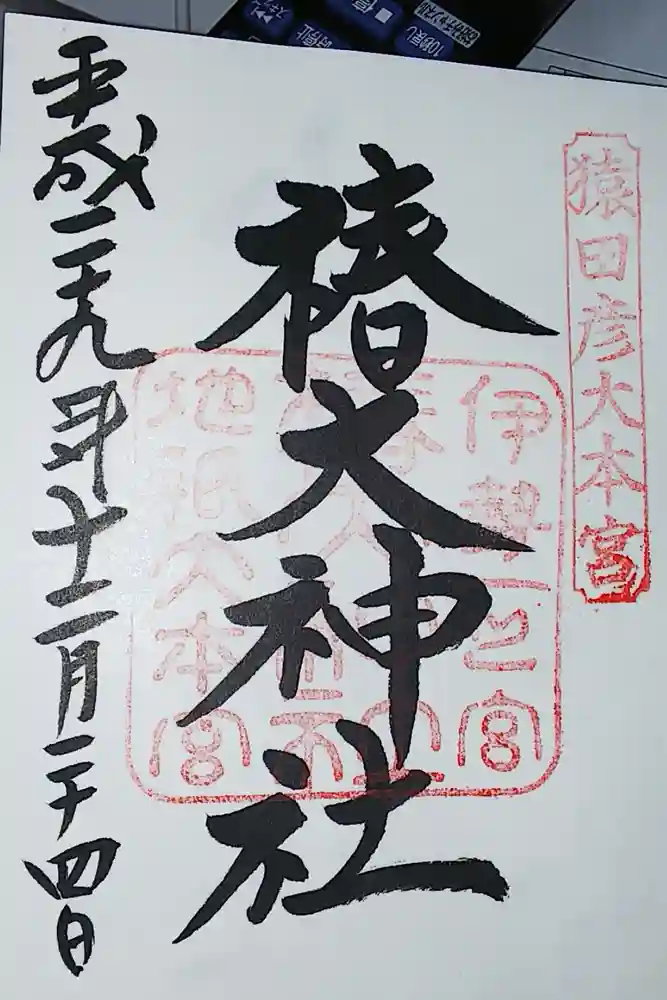 猿田彦大本宮
椿大神社
伊勢一之宮
地祇大本宮
平成二十九年十二月二十四日